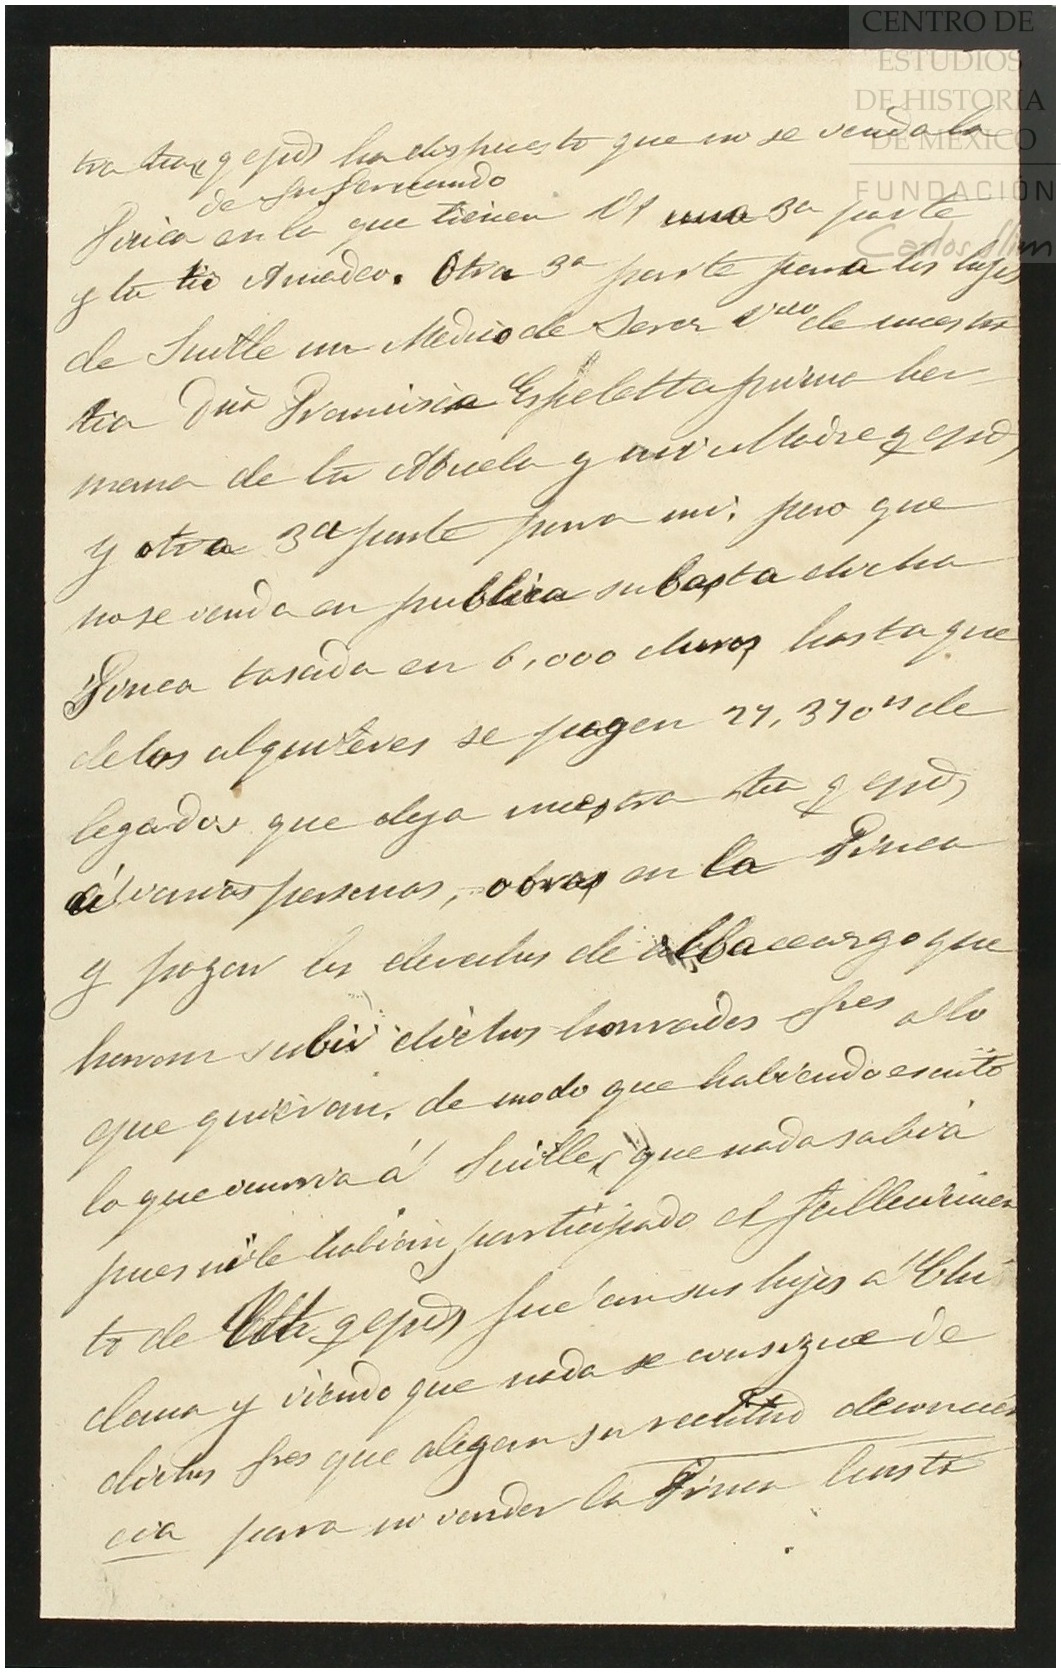 CENTRO DE
ESTUDIOS
DE HISTORIA
DE MÉXICO
FUNDACIÓN
Carlos Slim
tra tia, q epd, ha dispuesto que no se venda la
de Sn Fernando
Finca en la que tienen Vs una 3a parte
y tu tio Amadeo. Otra 3a parte para los hijos
de Suille un Medico de Jerez de nuestra
tia Dña Francisca Espeletta prima her
mana de tu Abuela y mi Madre q epd,
y otra 3a parte para mi, pero que
no se venda en publica subasta dicha
Finca tasada en 6,000 duros, hasta que
de los alquileres se pagen 27,370 rs de
legados que deja nuestra tia q epd,
á varias personas, obras, en la Finca
y pagar los derechos de albaceazgo que
haran subir dichos honrados Sres a lo
que quieran, de modo que habiendo escrito
lo que ocurria á Suille, que nada sabia
pues ni le habian participado el fallecimien
to de q epd, fué con sus hijos a Chi
clana y viendo que nada se consigue de
dichos Sres que alegan su rectitud de concien
cia para no vender la Finca hasta